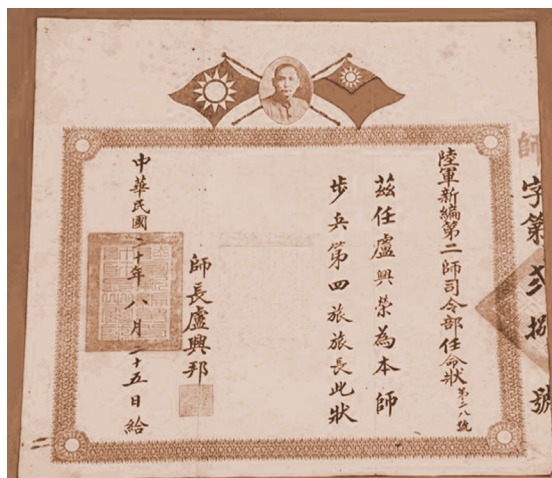 師字第貳拾號
陸軍新編第二師司令部任命狀 第二八號
茲任盧興榮為本師
步兵第四旅旅長此狀
師長盧興邦
中華民國二十年八月二十五日給